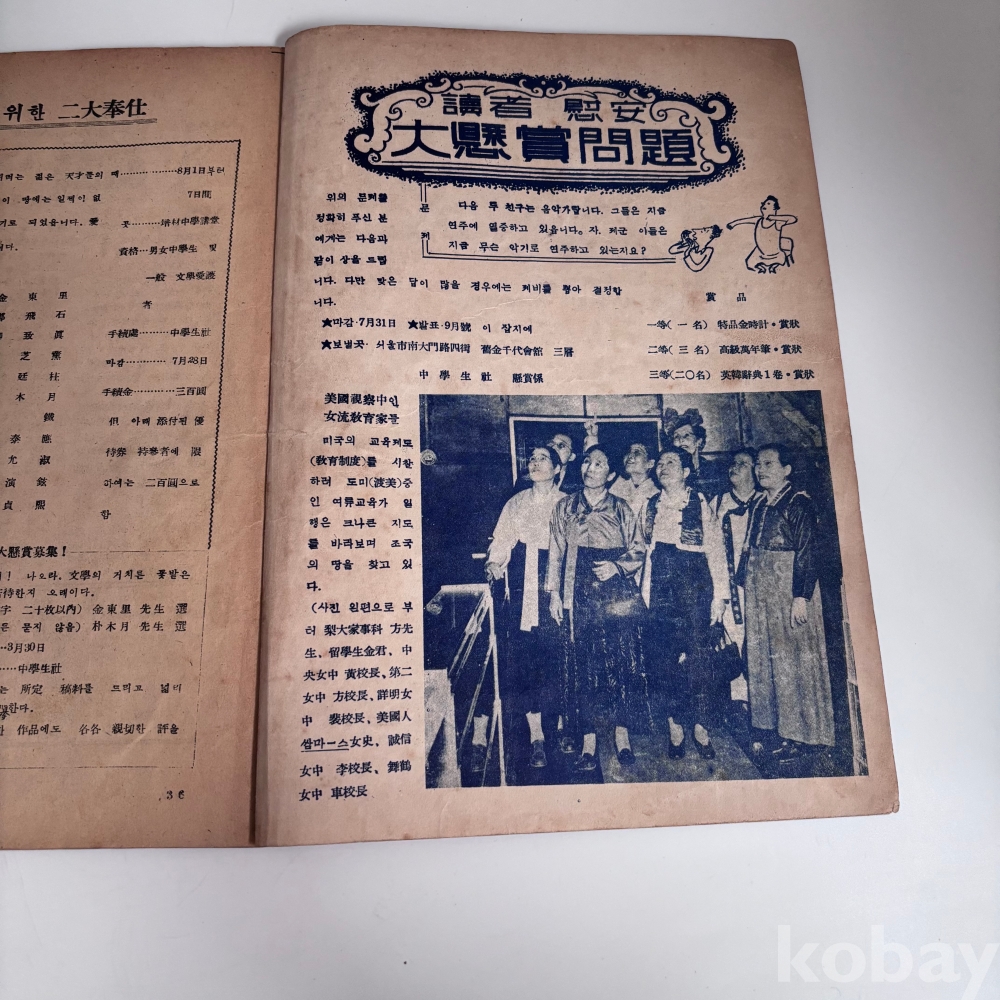 위한 二大奉仕
8月1日부터
7日間
곳………培材中學講堂
資格…男女中學生 및
一般 文學愛護
者
金東里
鄭飛石
手續處………中學生社
마감………7月28日
木月
手續金……三百圓
但 아래 添付된 優
待券 持參者에 限
하여는 二百圓으로
함
貞熙
大懸賞募集!
나오라. 文學의 거치른 꽃밭은
待한지 오래이다.
字 二十枚以內) 金東里 先生 選
든 묻지 않음) 朴木月 先生 選
…3月30日
……中學生社
는 所定 稿料를 드리고 널리
한다.
作品에도 各各 親切한 評을
36
讀者 慰安
大懸賞問題
위의 문제를
정확히 푸신 분
에게는 다음과
같이 상을 드립
니다. 다만 맞은 답이 많을 경우에는 제비를 뽑아 결정합
니다.
문
제
다음 두 친구는 음악가랍니다. 그들은 지금
연주에 열중하고 있읍니다. 자, 제군 이들은
지금 무슨 악기로 연주하고 있는지요?
★마감·7月31日 ★발표·9月號 이 잡지에
★보낼곳· 서울市南大門路四街 舊金千代會館 三層
中學生社 懸賞係
賞品
一等(一名) 特品金時計·賞狀
二等(三名) 高級萬年筆·賞狀
三等(二〇名) 英韓辭典1卷·賞狀
美國視察中인
女流敎育家들
미국의 교육제도
(敎育制度)를 시찰
하러 도미(渡美)중
인 여류교육가 일
행은 크나큰 지도
를 바라보며 조국
의 땅을 찾고 있
다.
(사진 왼편으로 부
터 梨大家事科 方先
生、留學生金君、中
央女中 黃校長、第二
女中 方校長、詳明女
中 裵校長、美國人
쌈마ー스女史、誠信
女中 李校長、舞鶴
女中 車校長
kobay